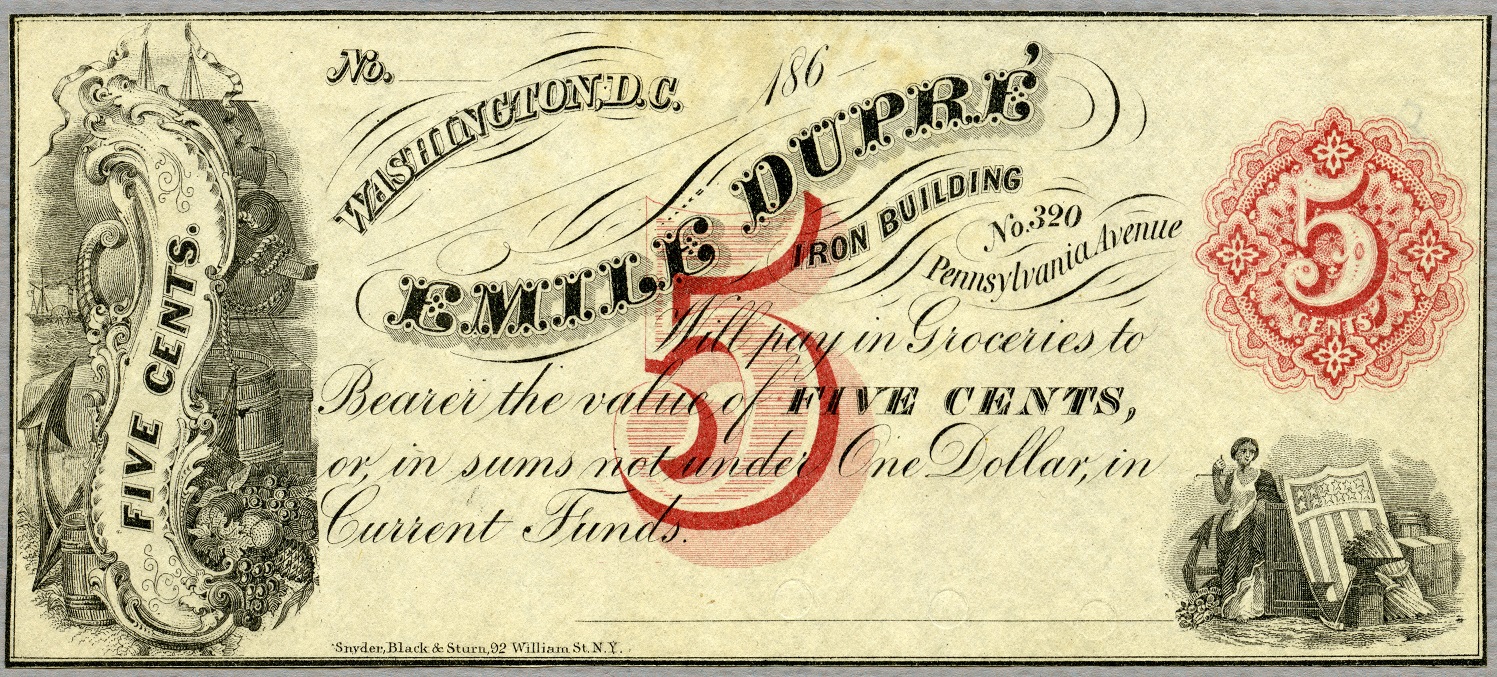 No.
WASHINGTON, D.C.
186
EMILE DUPRÉ
IRON BUILDING
No. 320
Pennsylvania Avenue
Will pay in Groceries to
Bearer the value of FIVE CENTS,
or, in sums not under One Dollar, in
Current Funds.
FIVE CENTS.
5
5
CENTS
Snyder, Black & Sturn, 92 William St. N.Y.